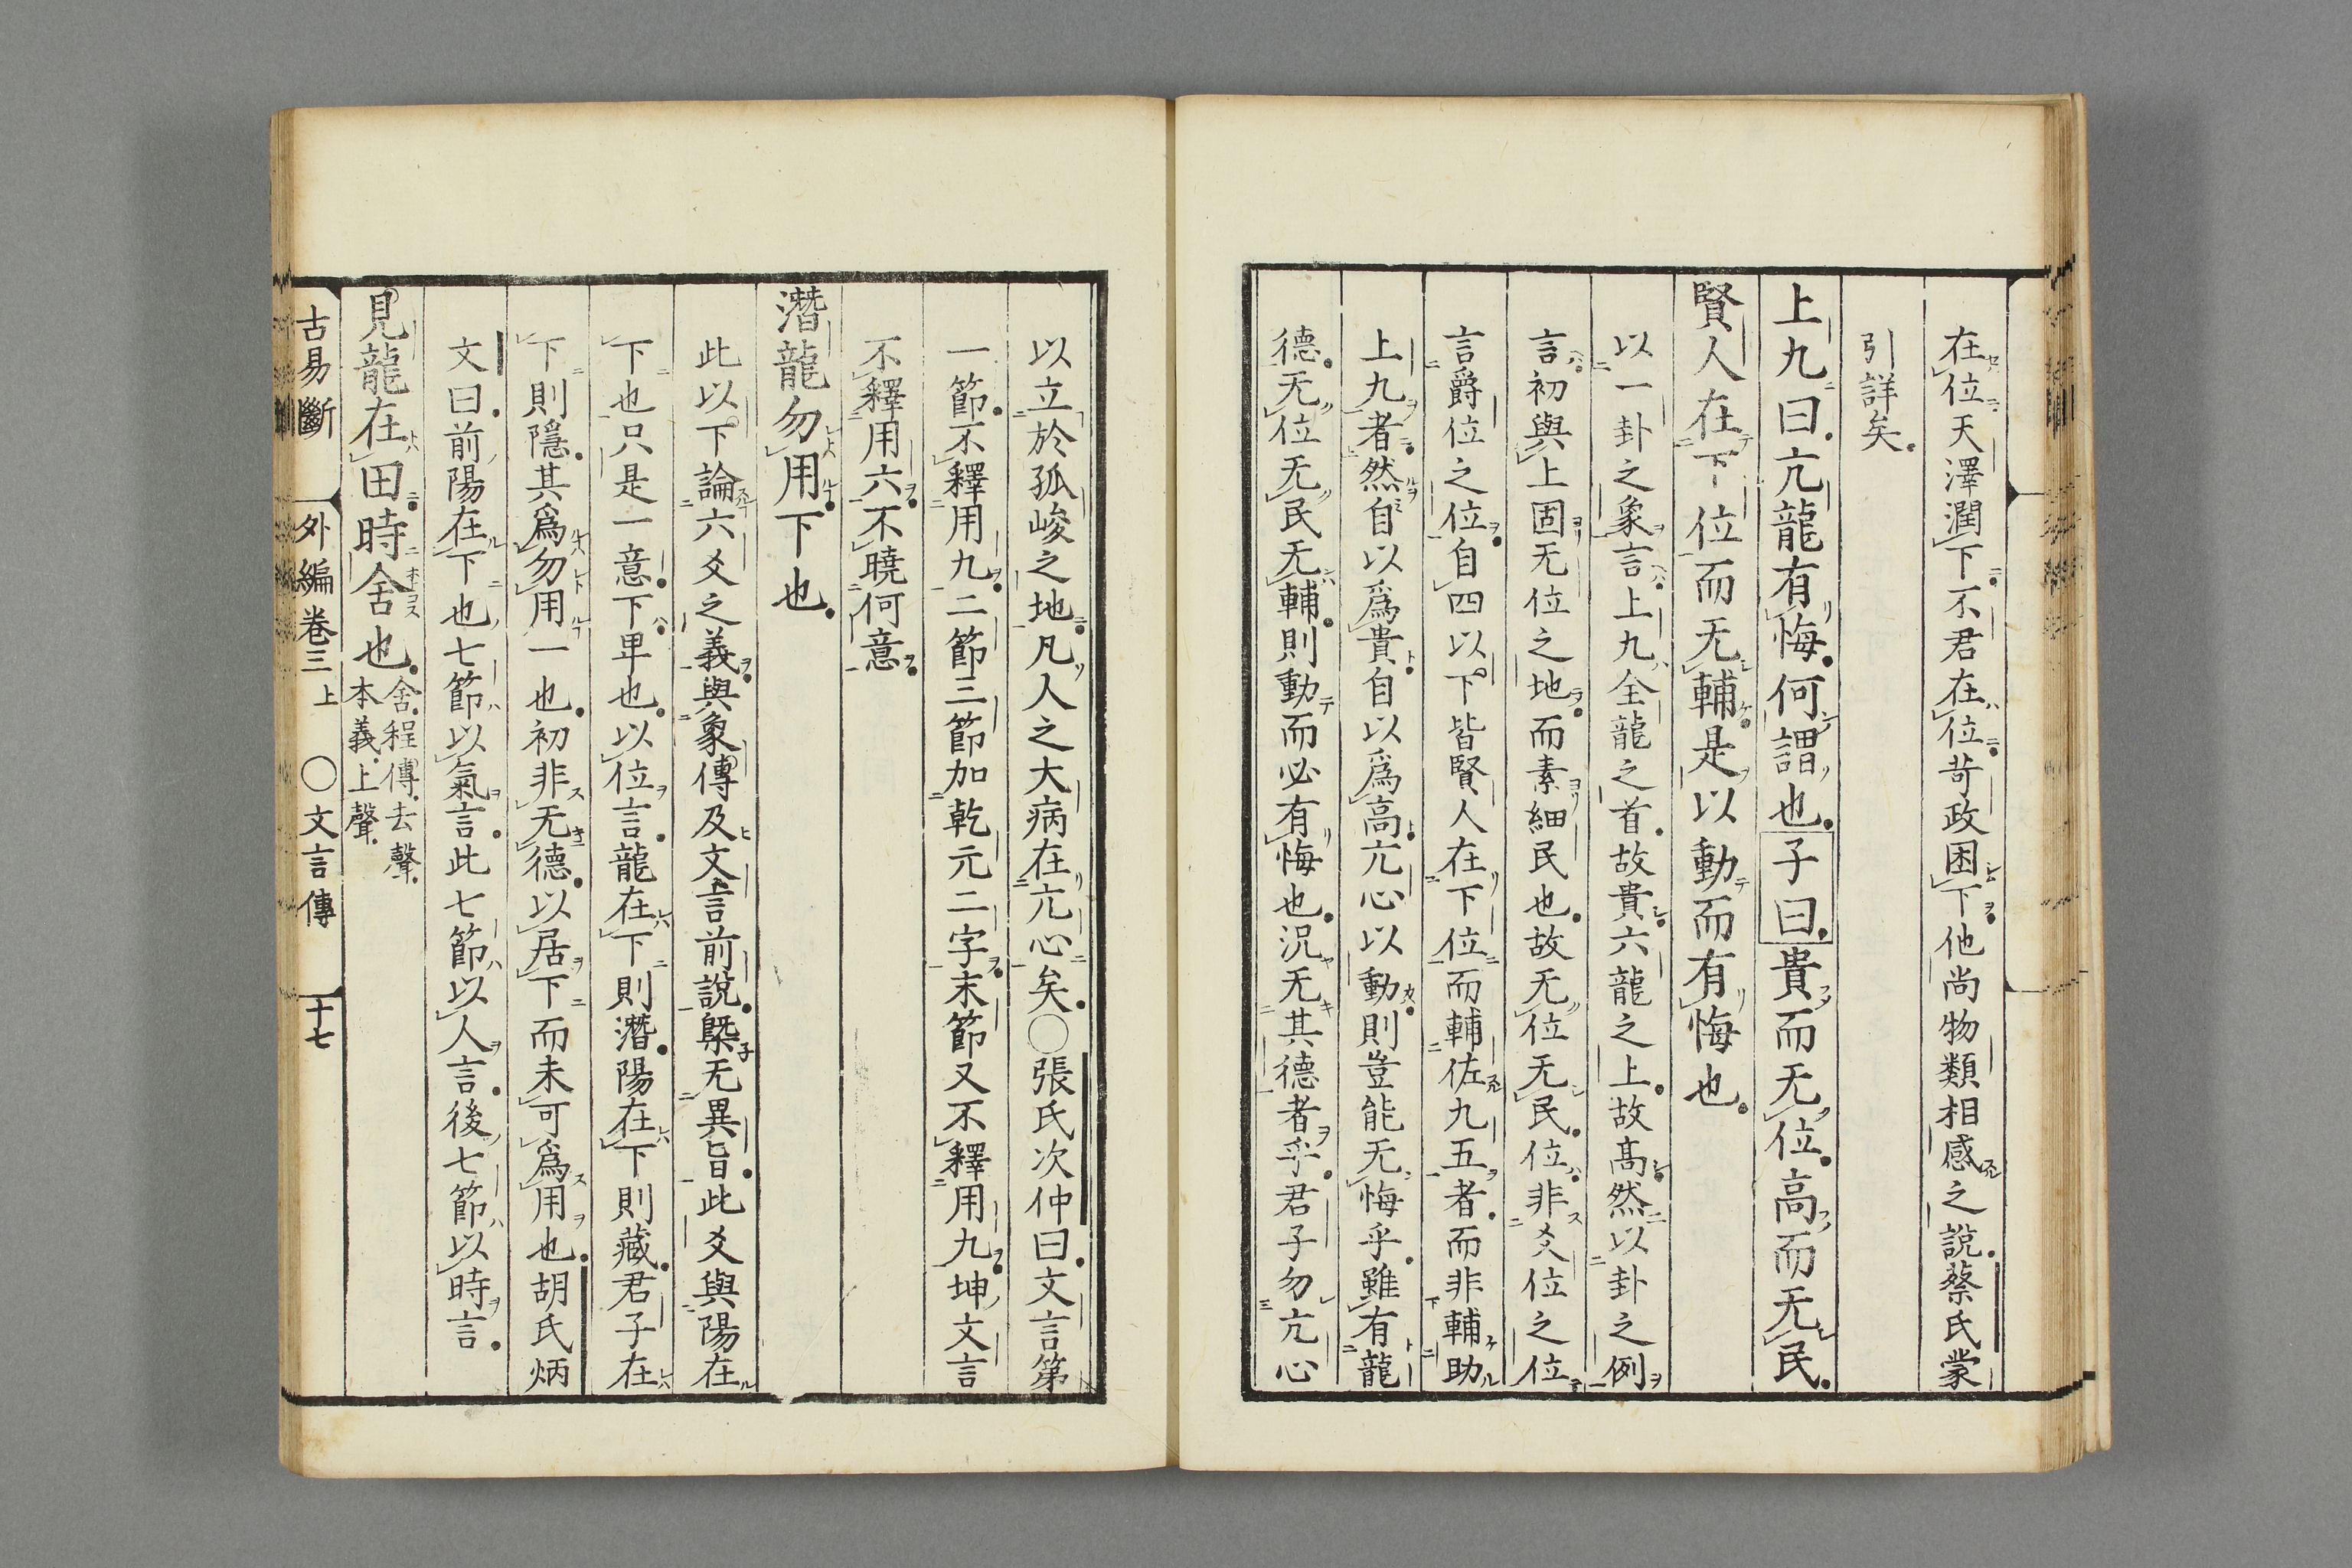 在位天澤潤下不君在位苛政困下他尚物類相感之說蔡氏蒙
引詳矣
上九曰亢龍有悔何謂也子曰貴而无位高而无民
賢人在下位而无輔是以動而有悔也
以一卦之象言上九全龍之首故貴六龍之上故髙然以卦之例
言初與上固无位之地而素細民也故无位无民位非爻位之位
言爵位之位自四以下皆賢人在下位而輔佐九五者而非輔助
上九者然自以爲貴自以爲高亢心以動則豈能无悔乎雖有龍
德无位无民无輔則動而必有悔也況无其德者乎君子勿亢心
以立於孤峻之地凡人之大病在亢心矣○張氏次仲曰文言第
一節不釋用九二節三節加乾元二字末節又不釋用九坤文言
不釋用六不曉何意
潛龍勿用下也
此以下論六爻之義與象傳及文言前說槩无異旨此爻與陽在
下也只是一意下卑也以位言龍在下則潛陽在下則藏君子在
下則隱其爲勿用一也初非无德以居下而未可爲用也胡氏炳
文曰前陽在下也七節以氣言此七節以人言後七節以時言
見龍在田時舍也舍程傳去聲
本義上聲
古易斷 外編卷三上 ○文言傳 十七